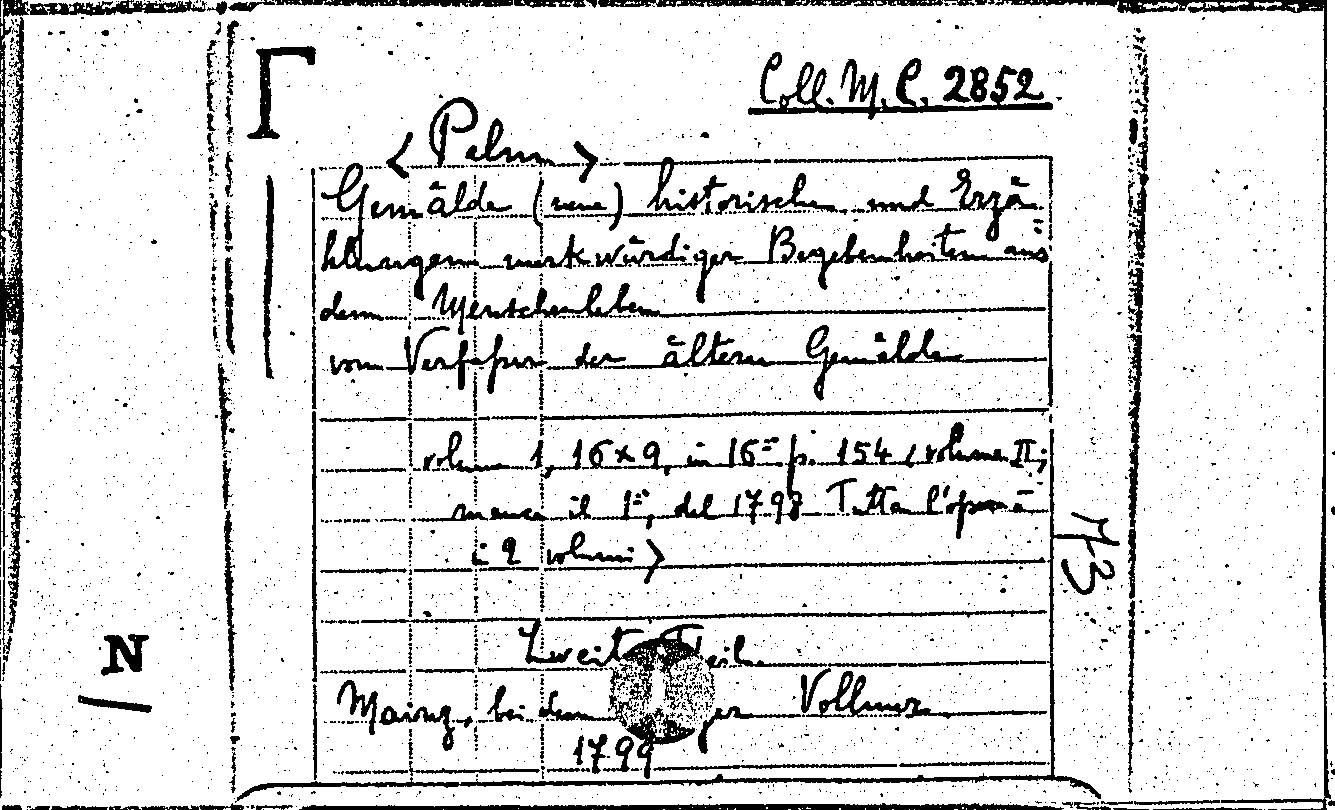 Γ
Coll. M. C. 2852
< Palm >
Gemälde (neue) historische und Erzä
hlungen merkwürdiger Begebenheiten aus
dem Menschenleben
vom Verfaßer der ältern Gemälde
volume 1, 16 x 9, in 16= p. 154 (volume II;
manca il 1=, del 1798 Tutta l'opera
2 volumi)
N
Zweite Teil
Mainz, bei dem Vollmer
1799